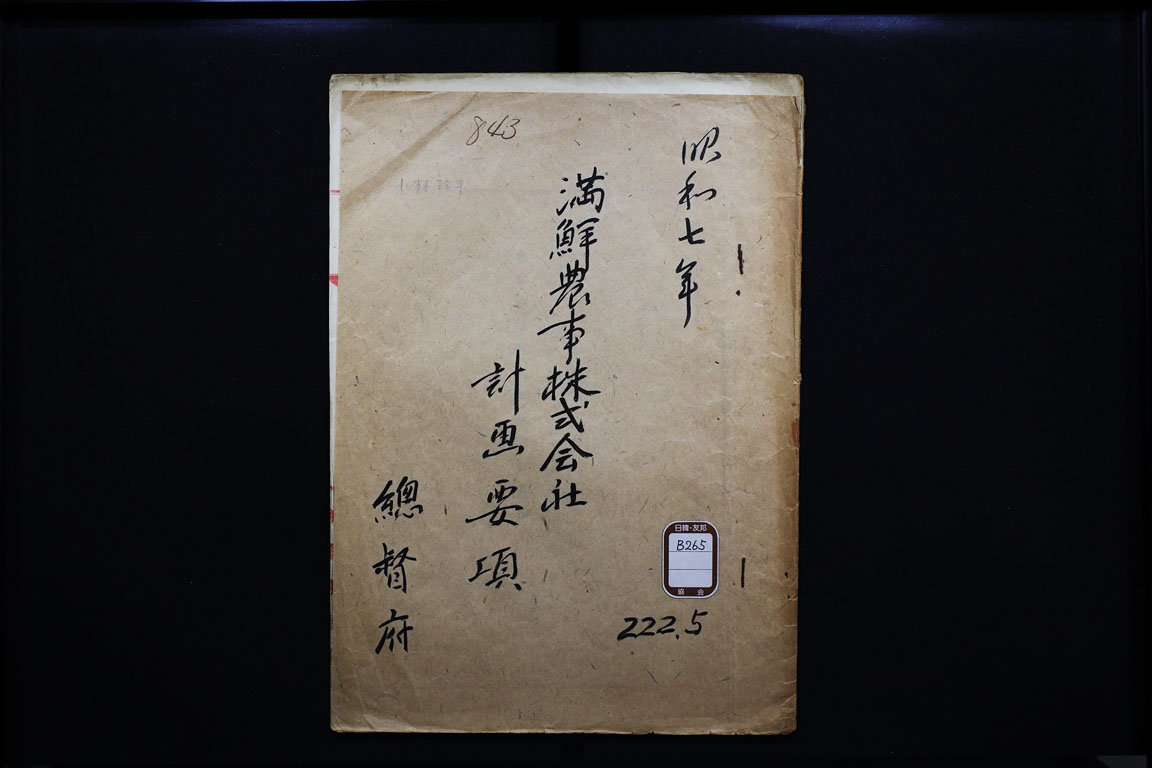 昭和七年
満鮮農事株式会社
計画要項
總督府
843
日韓・友邦
B265
協会
222.5